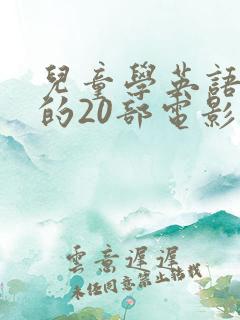 兒童學英語
的20部電影
雲意遲遲
未任同意禁止转载